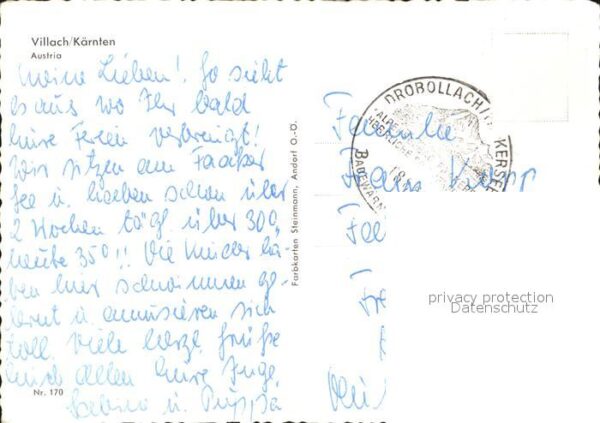 Villach/Kärnten
Austria
Meine Lieben! So sieht
es aus wo Ihr bald
Eure Ferien verbringt!
Wir sitzen am Faaker
See u. haben schon über
2 Wochen tägl. über 30°,
heute 35°!! Die Kinder ha-
ben hier schwimmen ge-
lernt u. amüsieren sich
toll. Viele herzl. Grüße
Euch allen Eure Inge,
u.
Nr. 170
Farbkarten Steinmann, Andorf O.-Ö.
DROBOLLACH/
KERSEE
Familie
Hans
privacy protection
Datenschutz